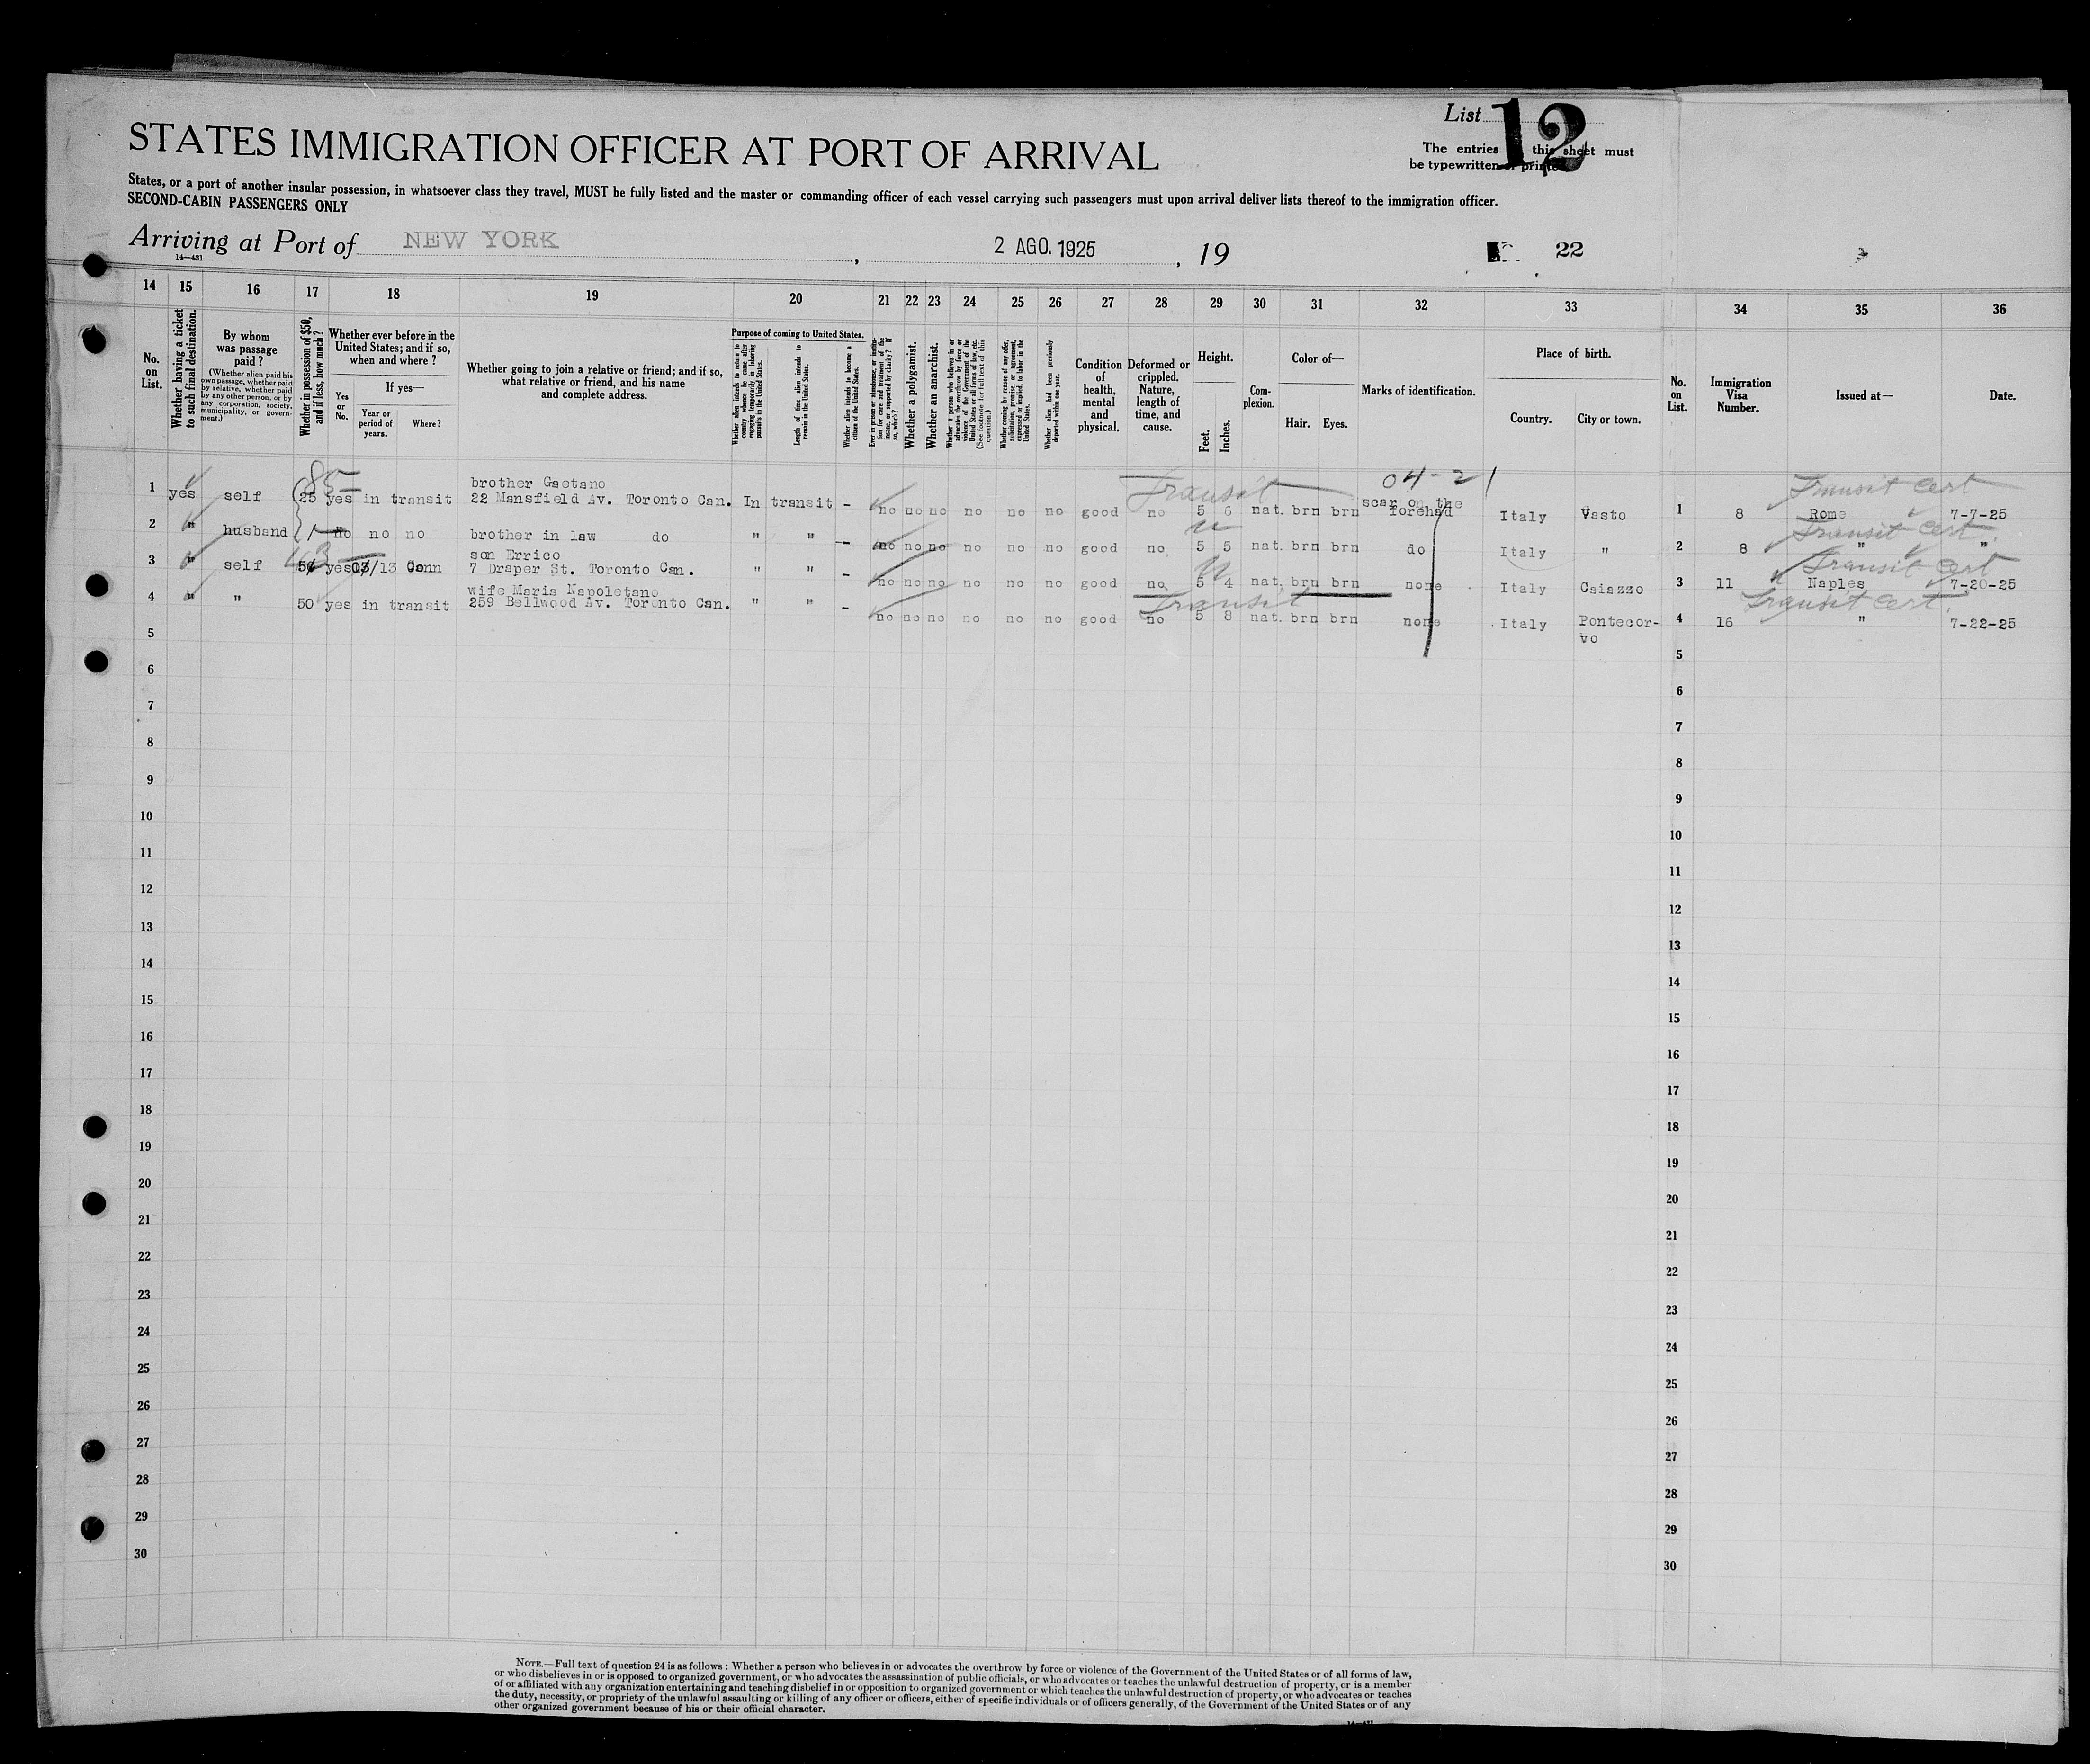 List 12
STATES IMMIGRATION OFFICER AT PORT OF ARRIVAL
The entries this sheet must
be typewritten or printed
States, or a port of another insular possession, in whatsoever class they travel, MUST be fully listed and the master or commanding officer of each vessel carrying such passengers must upon arrival deliver lists thereof to the immigration officer.
SECOND-CABIN PASSENGERS ONLY
Arriving at Port of NEW YORK, 2 AGO. 1925, 19 22
14—431
14 15 16 17 18 19 20 21 22 23 24 25 26 27 28 29 30 31 32 33 34 35 36
No. on List.
Whether having a ticket to such final destination.
By whom was passage paid?
(Whether alien paid his own passage, whether paid by relative, whether paid by any other person, or by any corporation, society, municipality, or government.)
Whether in possession of $50, and if less, how much?
Whether ever before in the United States; and if so, when and where?
Yes or No.
If yes—
Year or period of years.
Where?
Whether going to join a relative or friend; and if so, what relative or friend, and his name and complete address.
Purpose of coming to United States.
Whether alien intends to return to country whence he came after engaging temporarily in laboring pursuits in the United States.
Length of time alien intends to remain in the United States.
Whether alien intends to become a citizen of the United States.
Ever in prison or almshouse, or institution for care and treatment of the insane, or supported by charity? If so, which?
Whether a polygamist.
Whether an anarchist.
Whether a person who believes in or advocates the overthrow by force or violence of the Government of the United States or all forms of law, etc. (See footnote for full text of this question.)
Whether coming by reason of any offer, solicitation, promise, or agreement, expressed or implied, to labor in the United States.
Whether alien had been previously deported within one year.
Condition of health, mental and physical.
Deformed or crippled. Nature, length of time, and cause.
Height.
Feet. Inches.
Complexion.
Color of—
Hair. Eyes.
Marks of identification.
Place of birth.
Country. City or town.
No. on List.
Immigration Visa Number.
Issued at—
Date.
85 Transit 04-21 Transit cert
1 yes self 25 yes in transit brother Gaetano
22 Mansfield Av. Toronto Can. In transit - no no no no no no good no 5 6 nat. brn brn scar on the forehad Italy Vasto 1 8 Rome 7-7-25
Transit cert.
2 " husband no no no brother in law do " " - no no no no no no good no 5 5 nat. brn brn do Italy " 2 8 " "
Transit cert
3 " self 50 yes 07/13 Conn son Errico
7 Draper St. Toronto Can. " " - no no no no no no good no 5 4 nat. brn brn none Italy Caiazzo 3 11 Naples 7-20-25
Transit Transit cert.
4 " " 50 yes in transit wife Maria Napoletano
259 Bellwood Av. Toronto Can. " " - no no no no no no good no 5 8 nat. brn brn none Italy Pontecor-
vo 4 16 " 7-22-25
5 5
6 6
7 7
8 8
9 9
10 10
11 11
12 12
13 13
14 14
15 15
16 16
17 17
18 18
19 19
20 20
21 21
22 22
23 23
24 24
25 25
26 26
27 27
28 28
29 29
30 30
NOTE.—Full text of question 24 is as follows: Whether a person who believes in or advocates the overthrow by force or violence of the Government of the United States or of all forms of law,
or who disbelieves in or is opposed to organized government, or who advocates the assassination of public officials, or who advocates or teaches the unlawful destruction of property, or is a member
of or affiliated with any organization entertaining and teaching disbelief in or opposition to organized government or which teaches the unlawful destruction of property, or who advocates or teaches
the duty, necessity, or propriety of the unlawful assaulting or killing of any officer or officers, either of specific individuals or of officers generally, of the Government of the United States or of any
other organized government because of his or their official character.